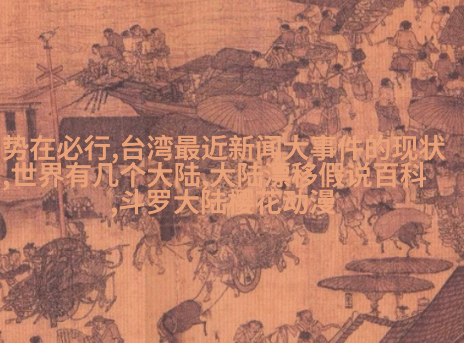 势在必行,台湾最近新闻大事件的现状
,世界有几个大陆,大陆漂移假说百科
,斗罗大陆樱花动漫